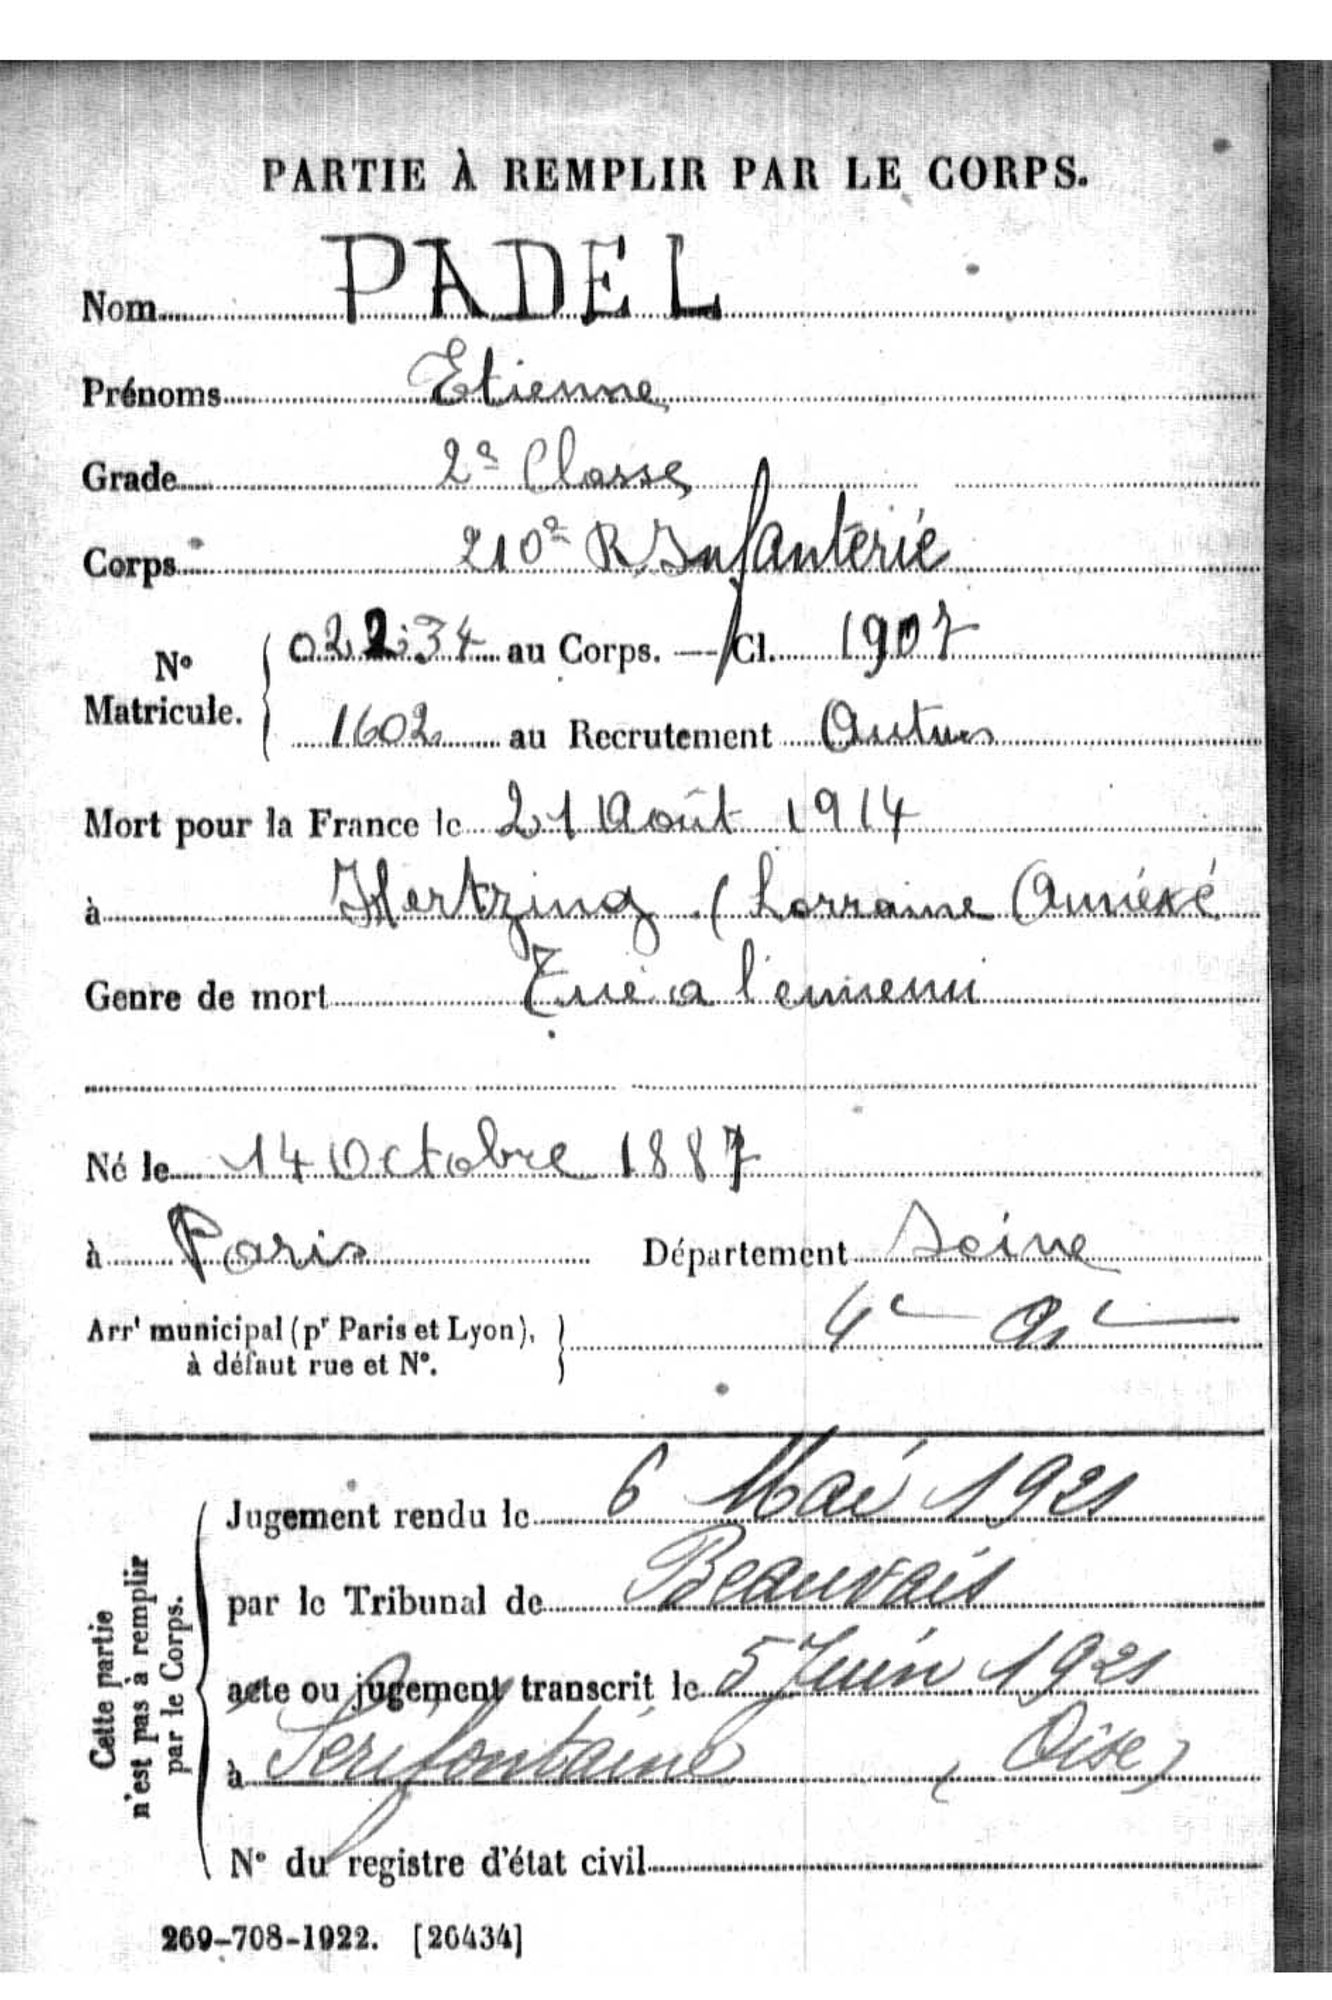 PARTIE À REMPLIR PAR LE CORPS.
Nom PADEL
Prénoms Etienne
Grade 2e Classe
Corps 210e R. Infanterie
N° Matricule. 022234 au Corps. — Cl. 1907
1602 au Recrutement Autun
Mort pour la France le 21 Août 1914
à Hertzing (Lorraine Annéxé
Genre de mort Tué a l'ennemi
Né le 14 Octobre 1887
à Paris Département Seine
Arrt municipal (pr Paris et Lyon), à défaut rue et N°. 4e Ar
Cette partie n'est pas à remplir par le Corps.
Jugement rendu le 6 Mai 1921
par le Tribunal de Beauvais
acte ou jugement transcrit le 5 Juin 1921
à Serifontaine (Oise)
N° du registre d'état civil
269-708-1922. [26434]